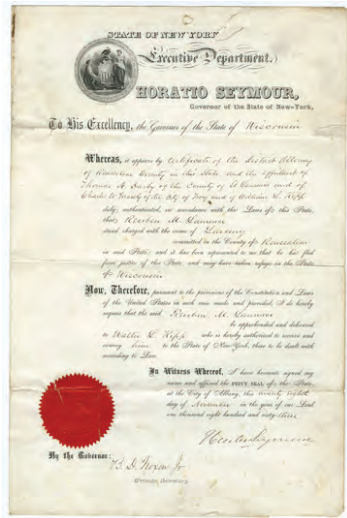 STATE OF NEW YORK
Executive Department.
HORATIO SEYMOUR,
Governor of the State of New-York,
To His Excellency, the Governor of the State of Wisconsin
Whereas, it appears by Certificate of the District Attorney
of Rensselaer County in this State and the affidavit of
Thomas A. of the County of and of
Charles of the City of Troy and of William L. Kipp
duly authenticated, in accordance with the Laws of this State,
that Reuben M.
stand charged with the crime of Larceny
committed in the County of Rensselaer
in said State; and it has been represented to me that he has fled
from justice of this State, and may have taken refuge in the State
of Wisconsin
Now, Therefore, pursuant to the provisions of the Constitution and Laws
of the United States in such case made and provided, I do hereby
request that the said Reuben M.
be apprehended and delivered
to Walter L. Kipp who is hereby authorized to receive and
convey him to the State of New-York, there to be dealt with
according to Law.
In Witness Whereof, I have hereunto signed my
name and affixed the PRIVY SEAL of the State,
at the City of Albany, this twenty eighth
day of November in the year of our Lord
one thousand eight hundred and sixty three
Horatio Seymour
By the Governor:
Jr
Private Secretary